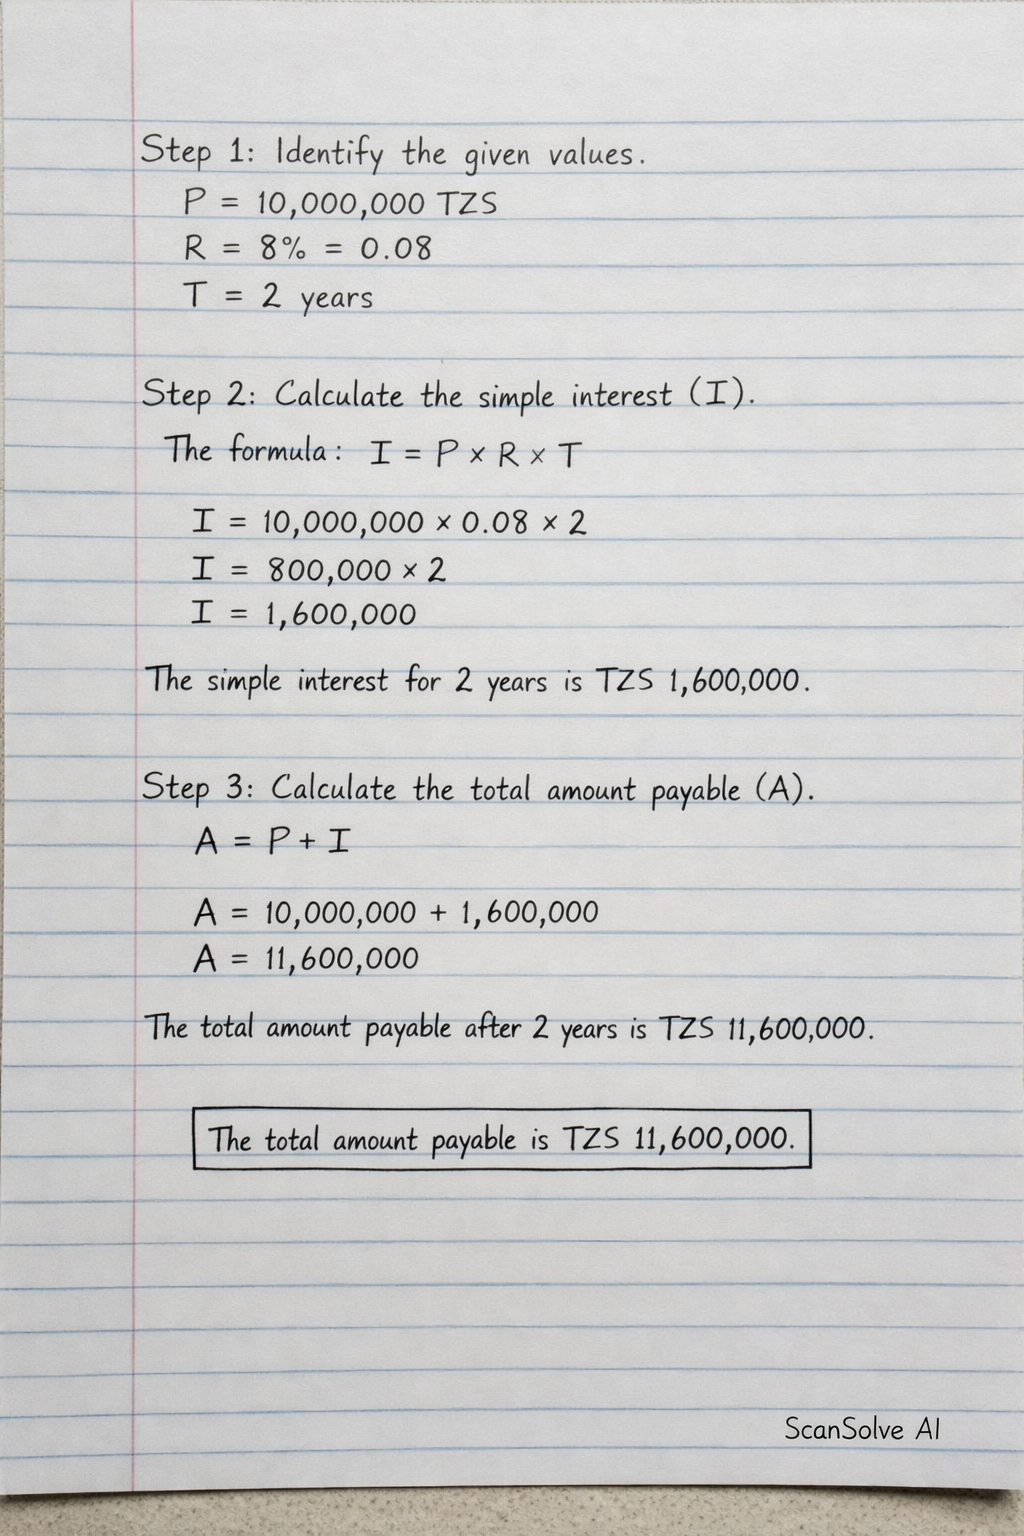 Step 1: Identify the given values.
P = 10,000,000 TZS
R = 8% = 0.08
T = 2 years
Step 2: Calculate the simple interest (I).
The formula: I = P × R × T
I = 10,000,000 × 0.08 × 2
I = 800,000 × 2
I = 1,600,000
The simple interest for 2 years is TZS 1,600,000.
Step 3: Calculate the total amount payable (A).
A = P + I
A = 10,000,000 + 1,600,000
A = 11,600,000
The total amount payable after 2 years is TZS 11,600,000.
The total amount payable is TZS 11,600,000.
ScanSolve AI